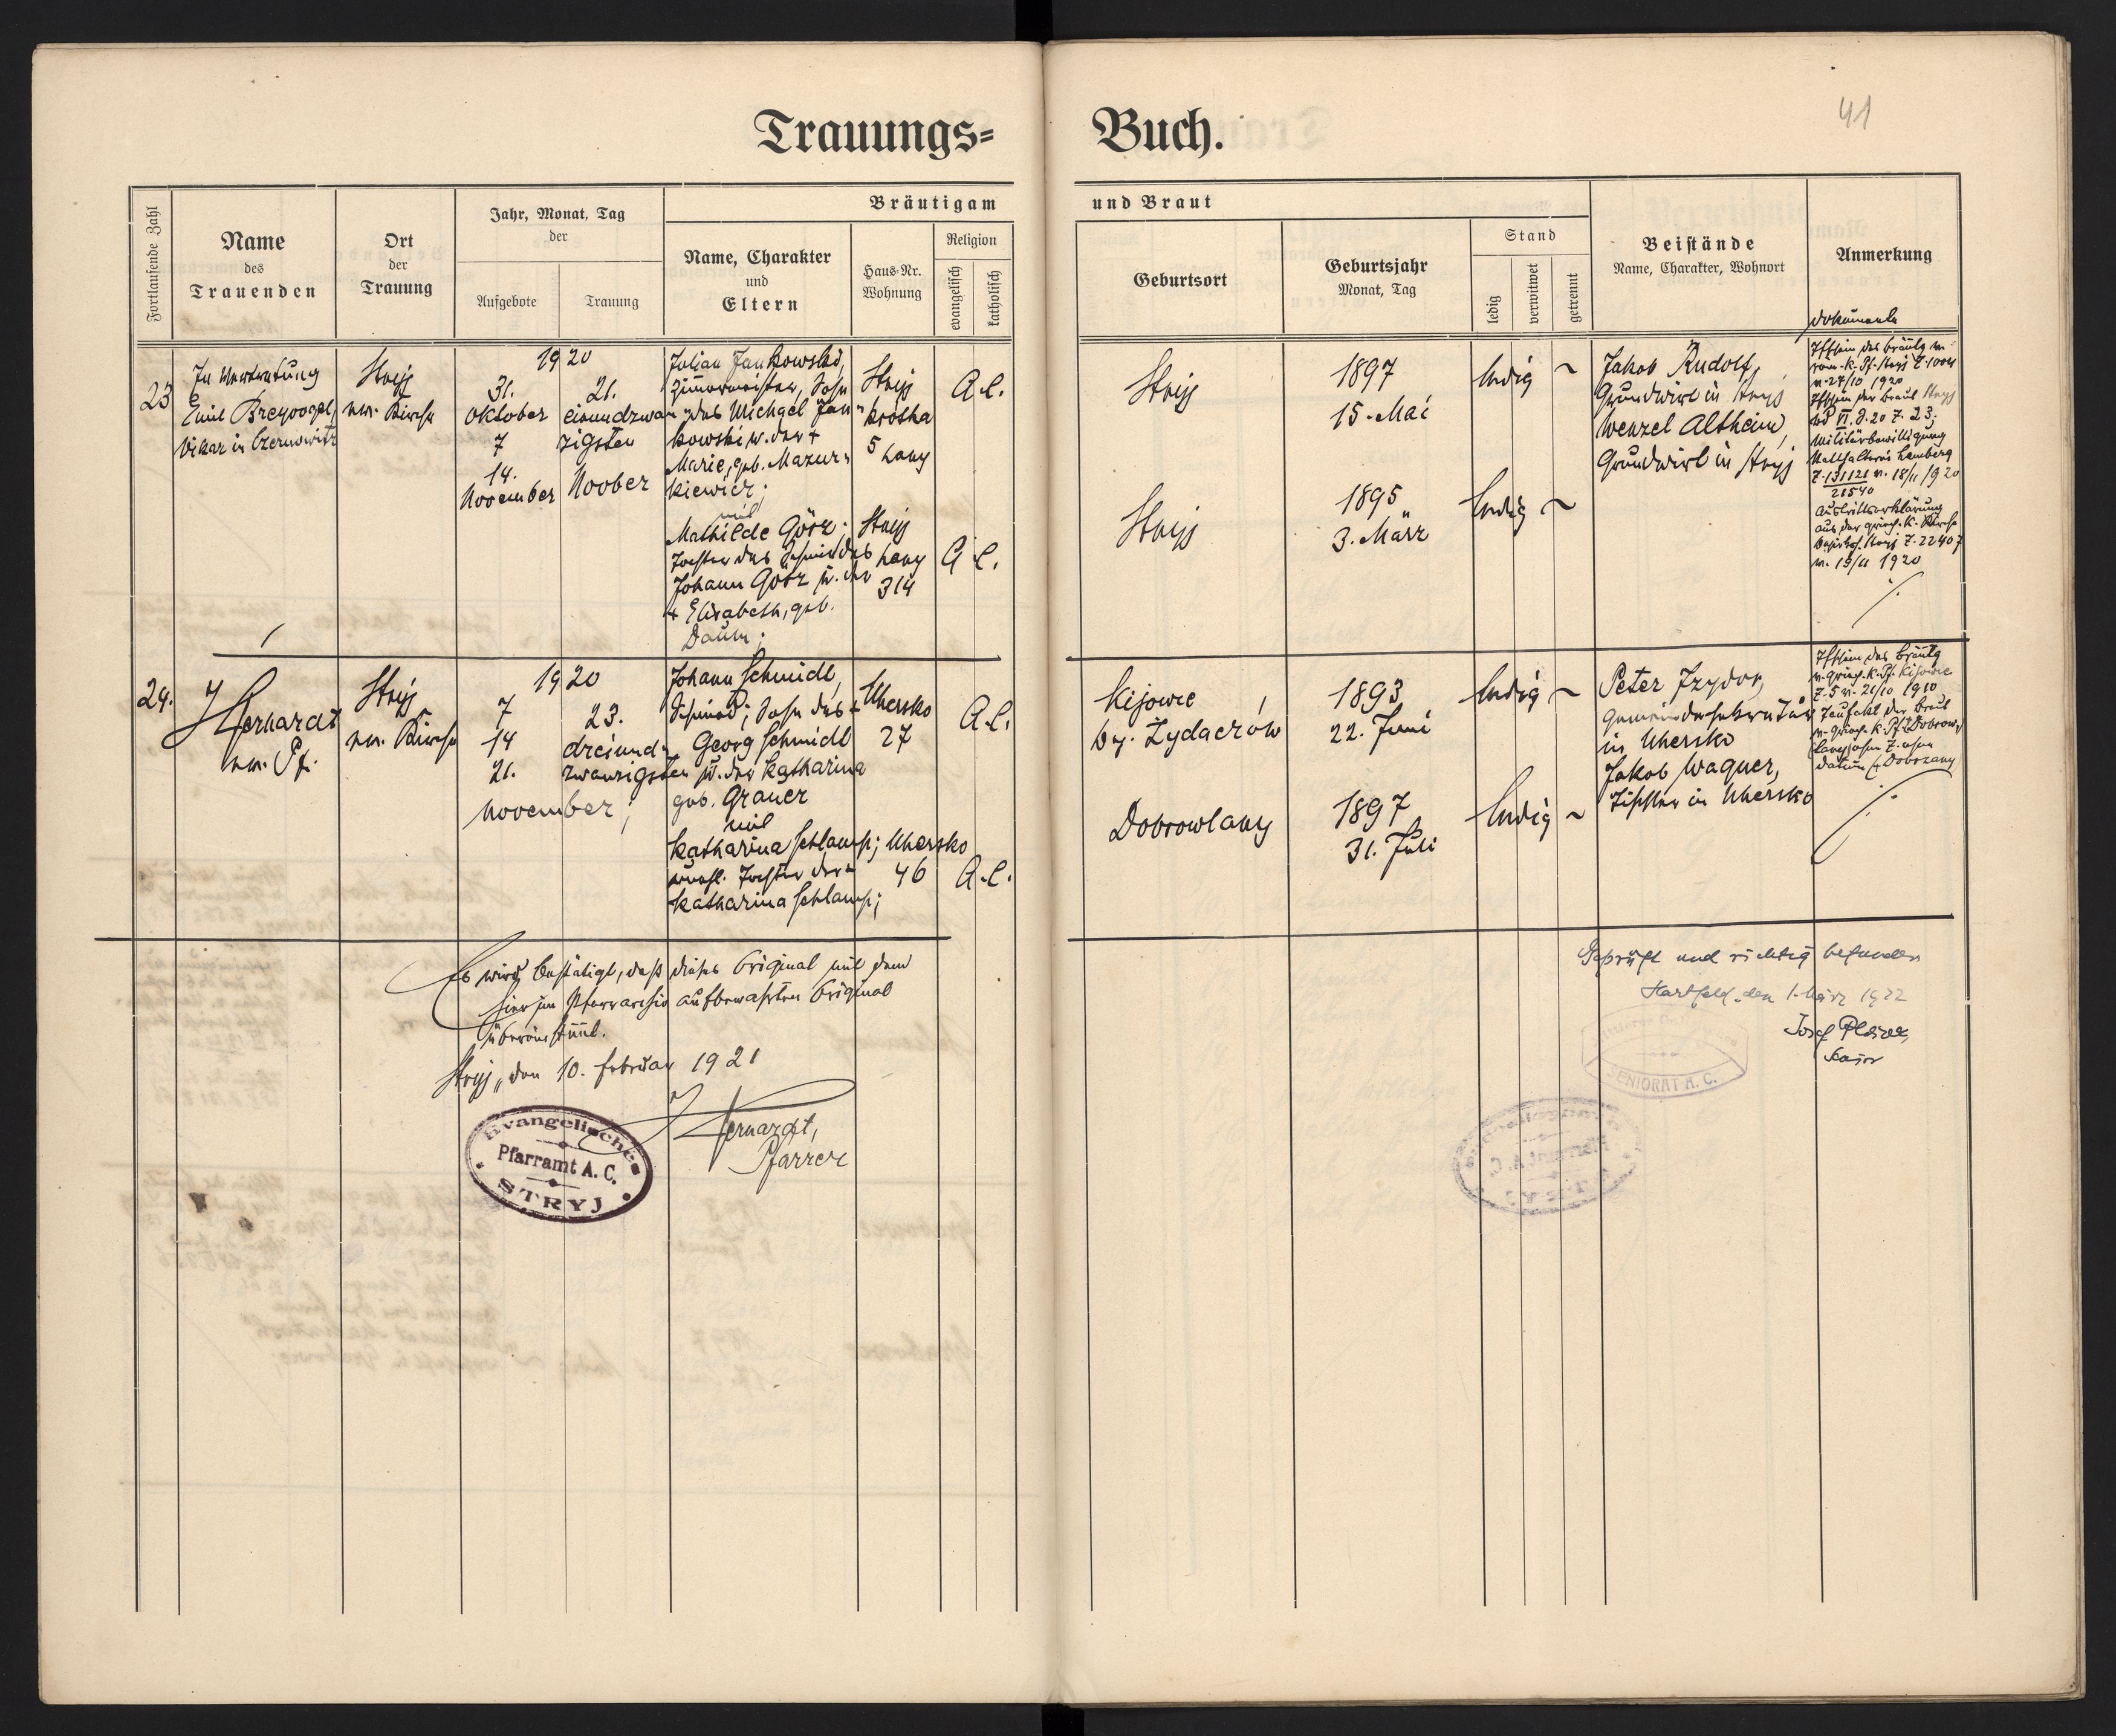 Trauungs= Buch.
41
Fortlaufende Zahl
Name
des
Trauenden
Ort
der
Trauung
Jahr, Monat, Tag
der
Aufgebote
Trauung
Bräutigam und Braut
Name, Charakter
und
Eltern
Haus=Nr.
Wohnung
Religion
evangelisch
katholisch
Geburtsort
Geburtsjahr
Monat, Tag
Stand
ledig
verwitwet
getrennt
Beistände
Name, Charakter, Wohnort
Anmerkung
Dokumente
23
In Vertretung
Emil
Vikar in Czernowitz
Stryj
ev. Kirche
1920
31.
Oktober
7
14.
November
21.
einundzwan=
zigsten
Noober
Julian Jankowski,
Zimmermeister, Sohn
des Michael Jan=
kowski u. der +
Marie, geb. Mazur=
kiewicz;
mit
Mathilde Götz;
Tochter des Schmiedes
Johann Götz u. der
+ Elisabeth, geb.
Daum;
Stryj
5 Lany
Stryj
Lany
314
A.C.
A.C.
Stryj
Stryj
1897
15. Mai
1895
3. März
ledig ~
ledig ~
Jakob Rudolf,
Grundwirt in Stryj
Wenzel Altheim,
Grundwirt in Stryj
Ifschein des Bräutg v.
röm.-k. Pf. Stryj Z. 1004
v. 27/10 1920
Ifschein der Braut Stryj
Z. 23;
Militärbewilligung
Lemberg
Z. 131121 v. 18/11 1920
21540
Austrittserklärung
aus der griech.-k. Kirche
Stryj Z. 22407
v. 19/11 1920
24.
J Hernardt
ev. Pf.
Stryj
ev. Kirche
1920
7
14
21.
November;
23.
dreiund=
zwanzigsten
Johann Schmidt,
Schmied; Sohn des +
Georg Schmidt
u. der Katharina
geb. Grauer
mit
Katharina Schlamp;
unehl. Tochter der
Katharina Schlamp;
Uhersko
27
Uhersko
46
A.C.
A.C.
Kijowie
bz. Żydaczów
Dobrowlany
1893
22. Juni
1897
31. Juli
ledig ~
ledig ~
Peter Izydor,
Gemeindesekretär
in Uhersko
Jakob Wagner,
Tischler in Uhersko
Ifschein des Bräutg
v. griech. k. Pf. Kijowie
Z. 5 v. 21/10 1910
der Braut
v. griech. k. Pf. Dobrow=
lany, ohne Z. ohne
Datum
Es wird bestätigt, daß dieses Original mit dem
hier im Pfarrarchiv aufbewahrten Original
übereinstimmt.
Stryj, den 10. Februar 1921
J Hernardt,
Pfarrer
Evangelisches
Pfarramt A. C.
STRYJ
Geprüft und richtig befunden
Hartfeld, den 1. März 1922
Josef
Senior
SENIORAT A. C.